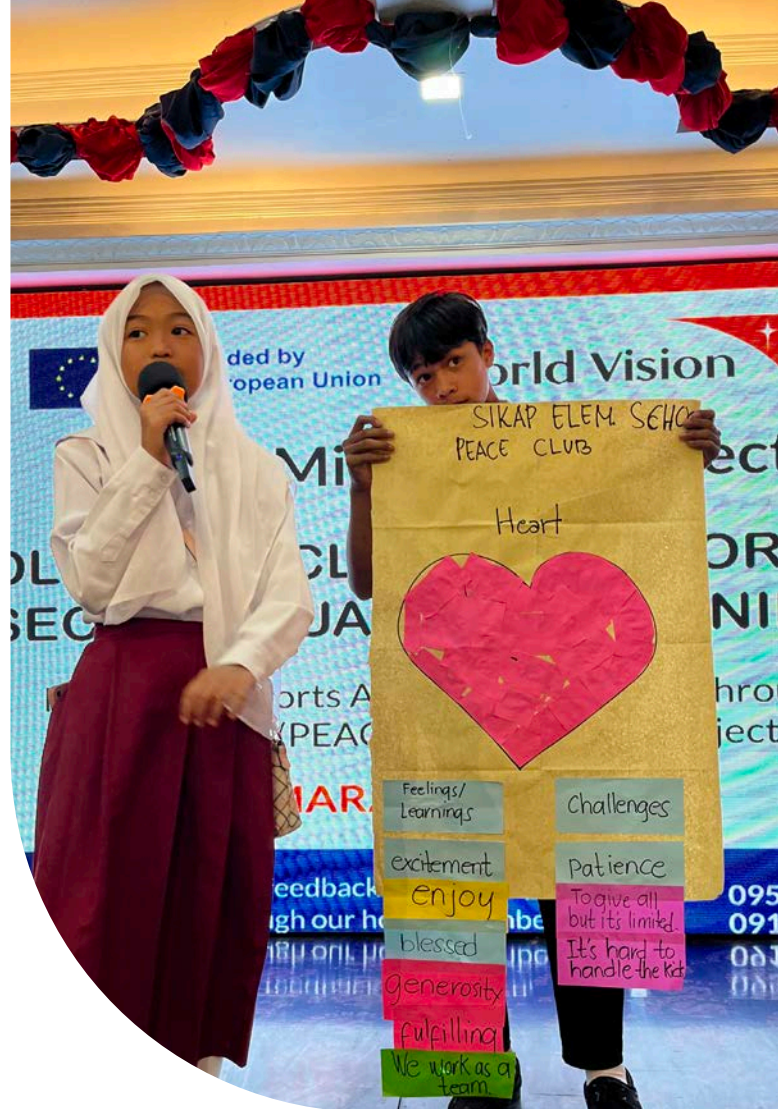 ded by
ropean Union
orld Vision
Mi
ect
OL
CL
OR
SEC
UA
NI
orts A
hro
(PEAC
ject
MAR
eedback
095
gh our ho
mbe
091
SIKAP ELEM. SCHO
PEACE CLUB
Heart
Feelings/
Learnings
excitement
enjoy
blessed
generosity
fulfilling
We work as a
team.
Challenges
Patience
To give all
but it's limited.
It's hard to
handle the kids